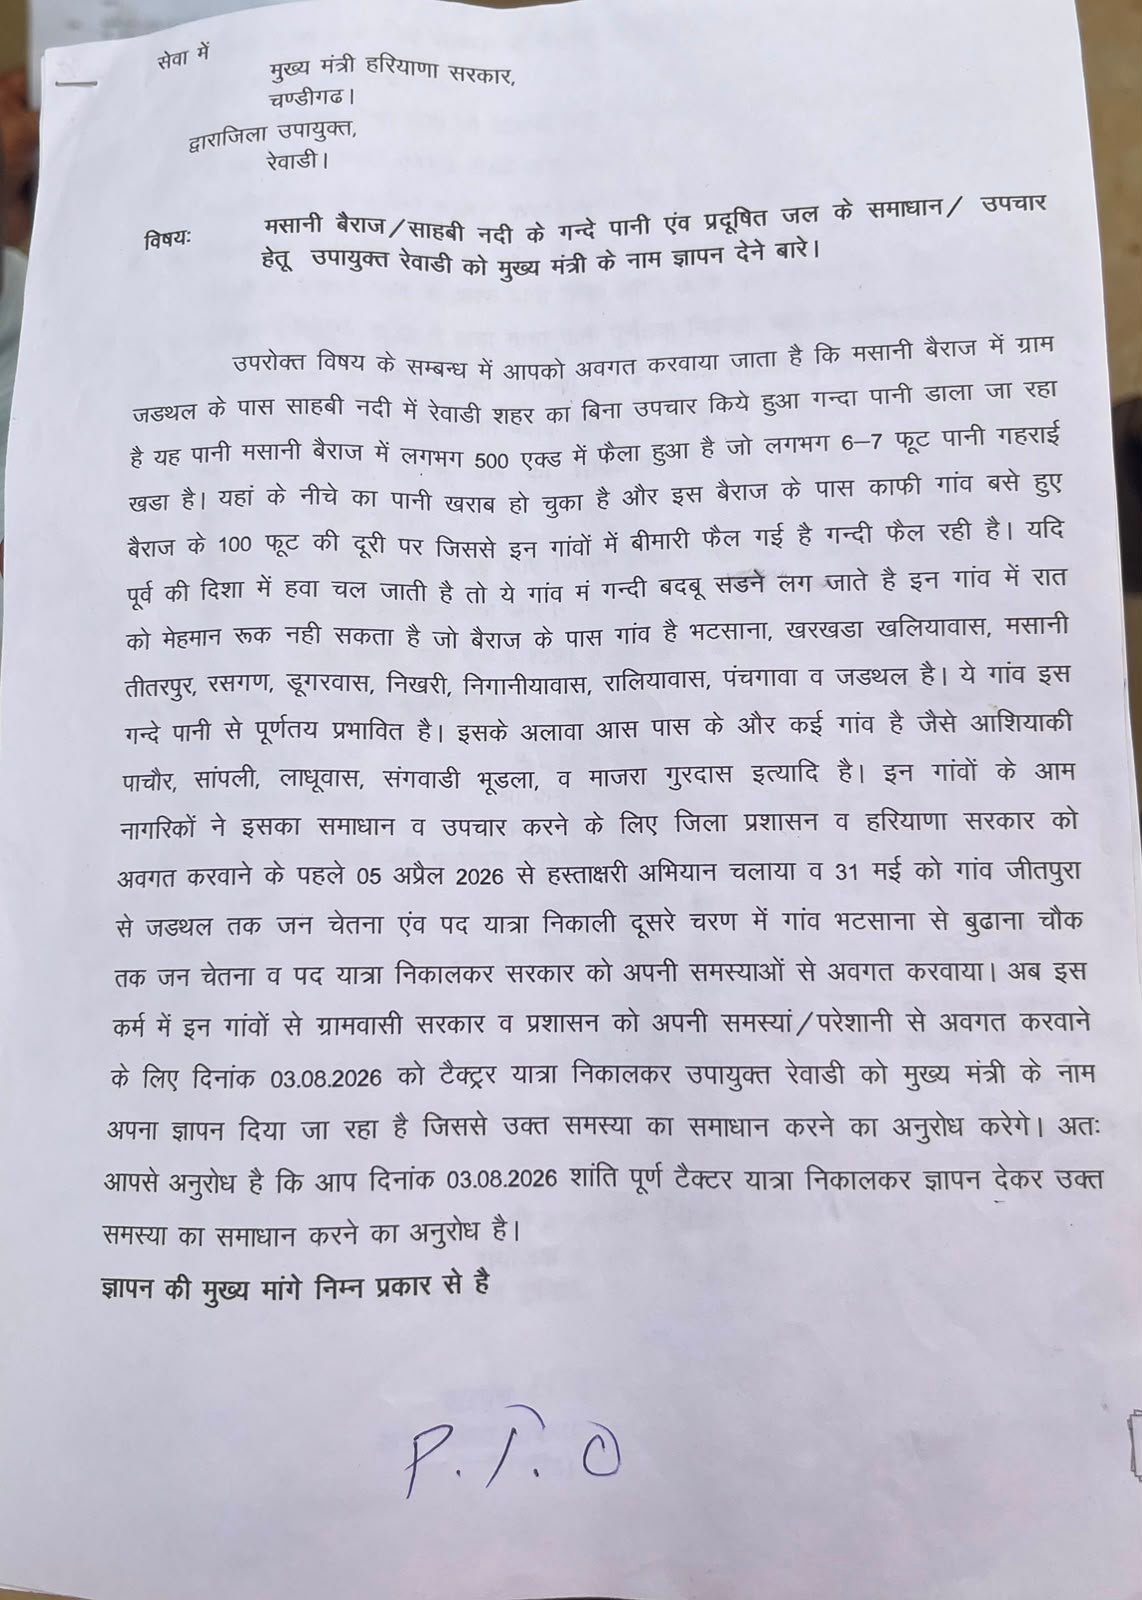 सेवा में
मुख्य मंत्री हरियाणा सरकार,
चण्डीगढ।
द्वाराजिला उपायुक्त,
रेवाडी।
विषयः मसानी बैराज/साहबी नदी के गन्दे पानी एंव प्रदूषित जल के समाधान/ उपचार
हेतू उपायुक्त रेवाडी को मुख्य मंत्री के नाम ज्ञापन देने बारे।
उपरोक्त विषय के सम्बन्ध में आपको अवगत करवाया जाता है कि मसानी बैराज में ग्राम
जडथल के पास साहबी नदी में रेवाडी शहर का बिना उपचार किये हुआ गन्दा पानी डाला जा रहा
है यह पानी मसानी बैराज में लगभग 500 एक्ड में फैला हुआ है जो लगभग 6–7 फूट पानी गहराई
खडा है। यहां के नीचे का पानी खराब हो चुका है और इस बैराज के पास काफी गांव बसे हुए
बैराज के 100 फूट की दूरी पर जिससे इन गांवों में बीमारी फैल गई है गन्दी फैल रही है। यदि
पूर्व की दिशा में हवा चल जाती है तो ये गांव मं गन्दी बदबू सडने लग जाते है इन गांव में रात
को मेहमान रूक नही सकता है जो बैराज के पास गांव है भटसाना, खरखडा खलियावास, मसानी
तीतरपुर, रसगण, डूगरवास, निखरी, निगानीयावास, रालियावास, पंचगावा व जडथल है। ये गांव इस
गन्दे पानी से पूर्णतय प्रभावित है। इसके अलावा आस पास के और कई गांव है जैसे आशियाकी
पाचौर, सांपली, लाधूवास, संगवाडी भूडला, व माजरा गुरदास इत्यादि है। इन गांवों के आम
नागरिकों ने इसका समाधान व उपचार करने के लिए जिला प्रशासन व हरियाणा सरकार को
अवगत करवाने के पहले 05 अप्रैल 2026 से हस्ताक्षरी अभियान चलाया व 31 मई को गांव जीतपुरा
से जडथल तक जन चेतना एंव पद यात्रा निकाली दूसरे चरण में गांव भटसाना से बुढाना चौक
तक जन चेतना व पद यात्रा निकालकर सरकार को अपनी समस्याओं से अवगत करवाया। अब इस
कर्म में इन गांवों से ग्रामवासी सरकार व प्रशासन को अपनी समस्यां/परेशानी से अवगत करवाने
के लिए दिनांक 03.08.2026 को टैक्ट्रर यात्रा निकालकर उपायुक्त रेवाडी को मुख्य मंत्री के नाम
अपना ज्ञापन दिया जा रहा है जिससे उक्त समस्या का समाधान करने का अनुरोध करेगे। अतः
आपसे अनुरोध है कि आप दिनांक 03.08.2026 शांति पूर्ण टैक्टर यात्रा निकालकर ज्ञापन देकर उक्त
समस्या का समाधान करने का अनुरोध है।
ज्ञापन की मुख्य मांगे निम्न प्रकार से है
P.T.O